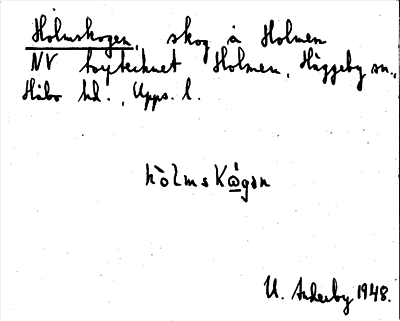 Holmskogen, skog å Holmen
NV torptecknet Holmen, Häggeby sn.,
Håbo hd., Upps. l.
hòlmskǿgən
U. Anderby 1948.